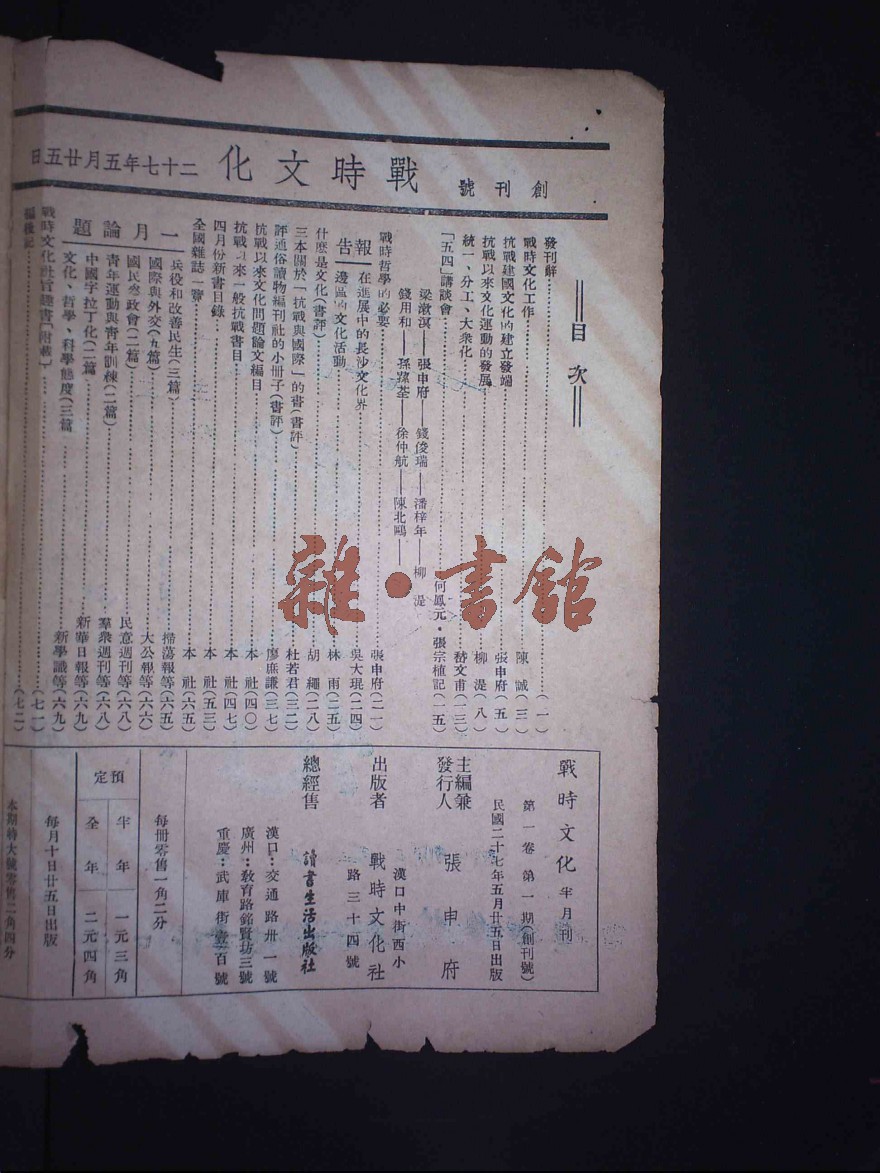 創刊號
戰時文化
二十七年五月廿五日
目次
發刊辭(一)
戰時文化工作 陳誠(三)
抗戰建國文化的建立發端 張申府(五)
抗戰以來文化運動的發展 柳湜(八)
統一、分工、大衆化 文甫(一三)
「五四」講談會 何鳳元・張宗植記(一五)
梁漱溟——張申府——錢俊瑞——潘梓年——柳湜
錢用和——孫蓀荃——徐仲航——陳北鷗——
戰時哲學的必要 張申府(二一)
報告
在進展中的長沙文化界 吳大琨(二四)
邊區的文化活動 林雨(二五)
什麽是文化(書評) 胡繩(二八)
三本關於「抗戰與國際」的書(書評) 杜若君(三二)
評通俗讀物編刊社的小册子(書評) 廖庶謙(三七)
抗戰以來文化問題論文編目 本社(四〇)
抗戰以來一般抗戰書目 本社(四七)
四月份新書目錄 本社(五三)
全國雜誌一覽 本社(六五)
一月論題
兵役和改善民生(三篇) 掃蕩報等(六五)
國際與外交(九篇) 大公報等(六六)
國民參政會(二篇) 民意週刊等(六八)
青年運動與青年訓練(二篇) 羣衆週刊等(六八)
中國字拉丁化(二篇) 新華日報等(六九)
文化、哲學、科學態度(三篇) 新學識等(六九)
戰時文化社旨趣書「附載」(七一)
編後記(七二)
戰時文化 半月刊
第一卷第一期(創刊號)
民國二十七年五月廿五日出版
主編兼發行人 張申府
出版者 戰時文化社
漢口中街西小路三十四號
總經售 讀書生活出版社
漢口:交通路卅一號
廣州:敎育路銘賢坊三號
重慶:武庫街壹百號
每冊零售一角二分
預定
半年 一元三角
全年 二元四角
每月十日廿五日出版
本期特大號零售二角四分
雜・書館